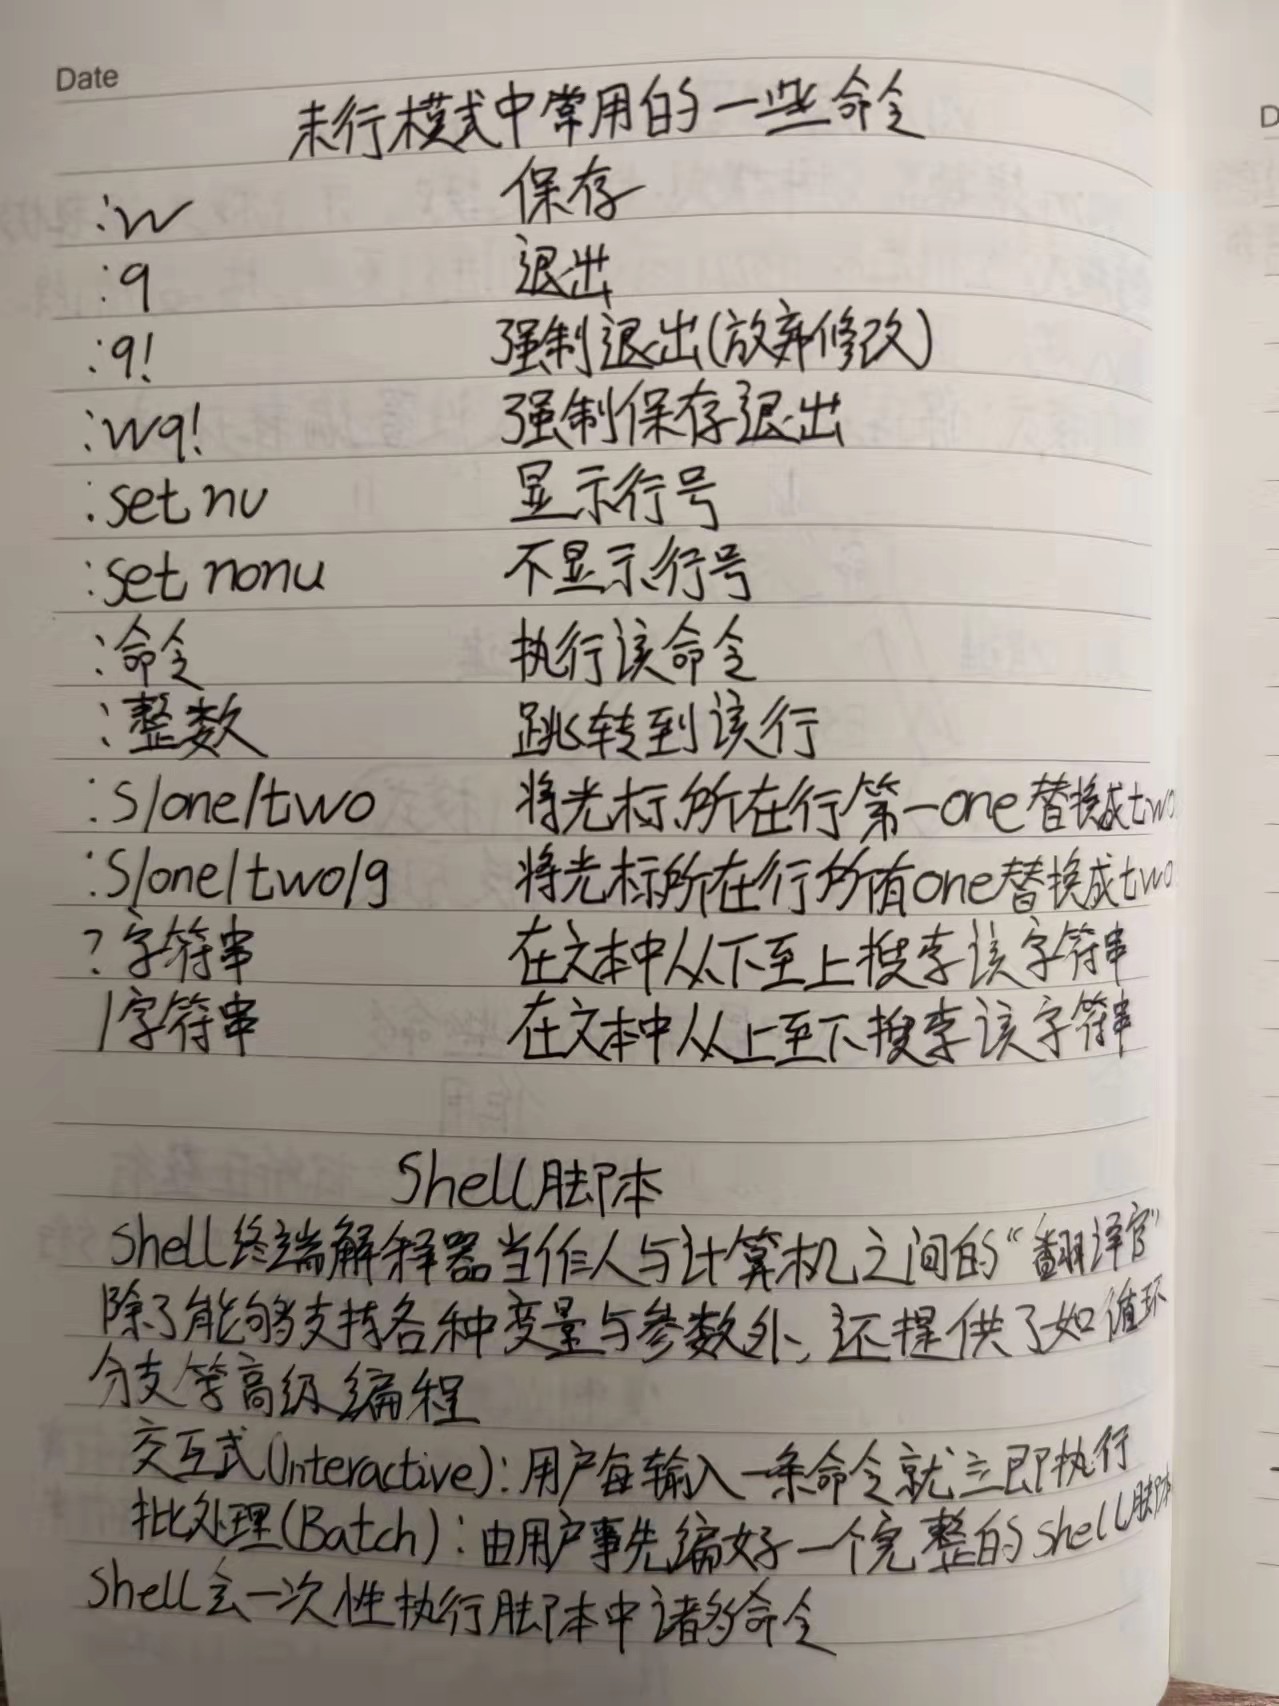 Date
末行模式中常用的一些命令
:w 保存
:q 退出
:q! 强制退出(放弃修改)
:wq! 强制保存退出
:set nu 显示行号
:set nonu 不显示行号
:命令 执行该命令
:整数 跳转到该行
:S/one/two 将光标所在行第一one替换成two
:S/one/two/g 将光标所在行所有one替换成two
?字符串 在文本中从下至上搜索该字符串
/字符串 在文本中从上至下搜索该字符串
Shell脚本
Shell终端解释器当作人与计算机之间的“翻译官”
除了能够支持各种变量与参数外,还提供了如循环
分支等高级编程
交互式(Interactive):用户每输入一条命令就立即执行
批处理(Batch):由用户事先编好一个完整的Shell脚本
Shell会一次性执行脚本中诸多命令